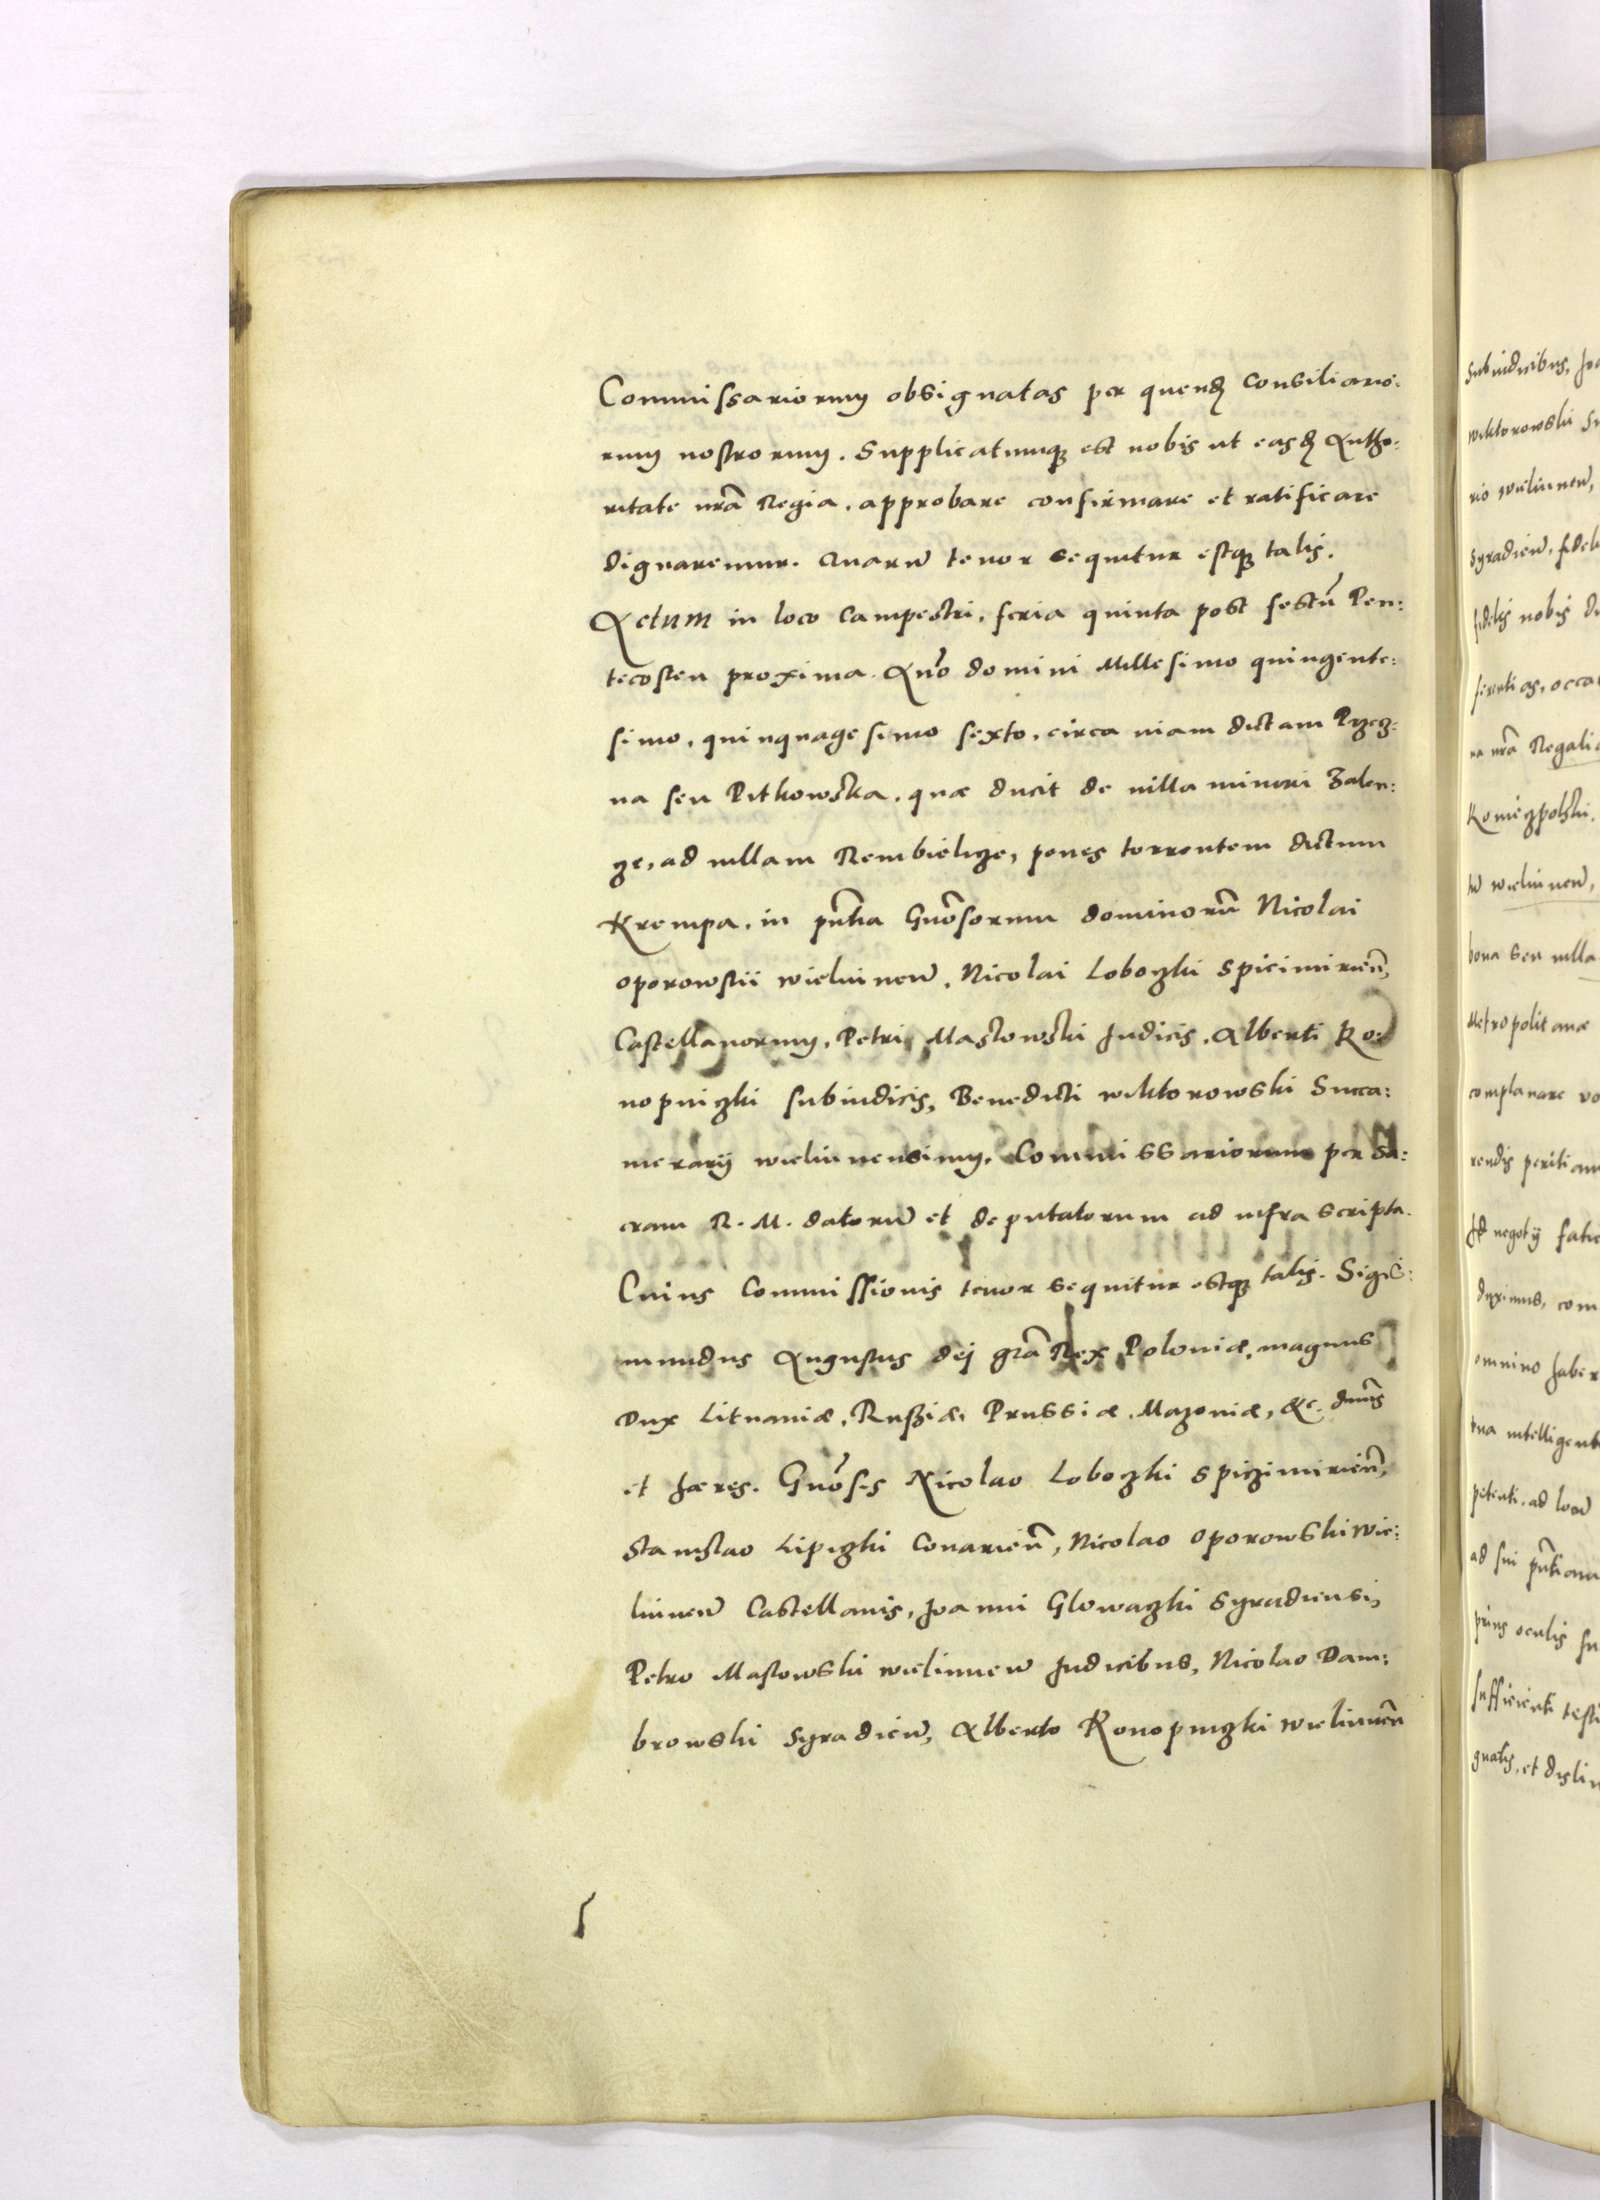 Commissariorum obsignatas per quend consiliario:
rum nostrorum. Supplicatumq3 est nobis ut easd Autho:
ritate nra Regia, approbare confirmare et ratificare
dignaremur. Quaru tenor sequitur estq3 talis.
Actum in loco campestri, feria quinta post festu Pen:
tecosten proxima. Anno domini Millesimo quingente:
simo, quinquagesimo sexto, circa viam dictam
na seu Pitkowska, quae ducit de villa minori Zalen:
ze, ad villam Rembielize, penes torrentem dictum
Krempa, in pntia Gnosorum dominoru Nicolai
Oporowskii wieliunen, Nicolai Loboczki Spicimirien,
Castellanorum, Petri Maslowski Judicis, Alberti Ko:
nopniczki subiudicis, Benedicti wiktorowski Succa:
merarij wieliunensium. Commissariorum per Sa:
cram R. M. datoru et deputatorum ad infra scripta.
Cuius Commissionis tenor sequitur estq3 talis. Sigis:
mundus Augustus dei gra Rex Poloniae, magnus
Dux Lituaniae, Russiae, Prussiae, Mazoviae, &c. dnus
et haeres. Gnosis Nicolao Loboczki Spiczimirien,
Stanislao Lipiczki Conarien, Nicolao Oporowski wie:
liunen Castellanis, Joanni Glowaczki Syradiensi,
Petro Maslowski wieliunen Judicibus, Nicolao Dam:
browski Syradien, Alberto Konopniczki wieliunen
subiudicibus,
wiktorowski
rio wieliunen,
Syradien,
fidelis nobis
ferentias,
na nra Regali
Konieczpolski
wieliunen,
bona seu villa
Metropolitanae
complanare
rendis peritiam
negotij
duximus, com
omnino haber
petenti, ad
ad sui pntiam
prius oculis
sufficienti testi
gnatis, et